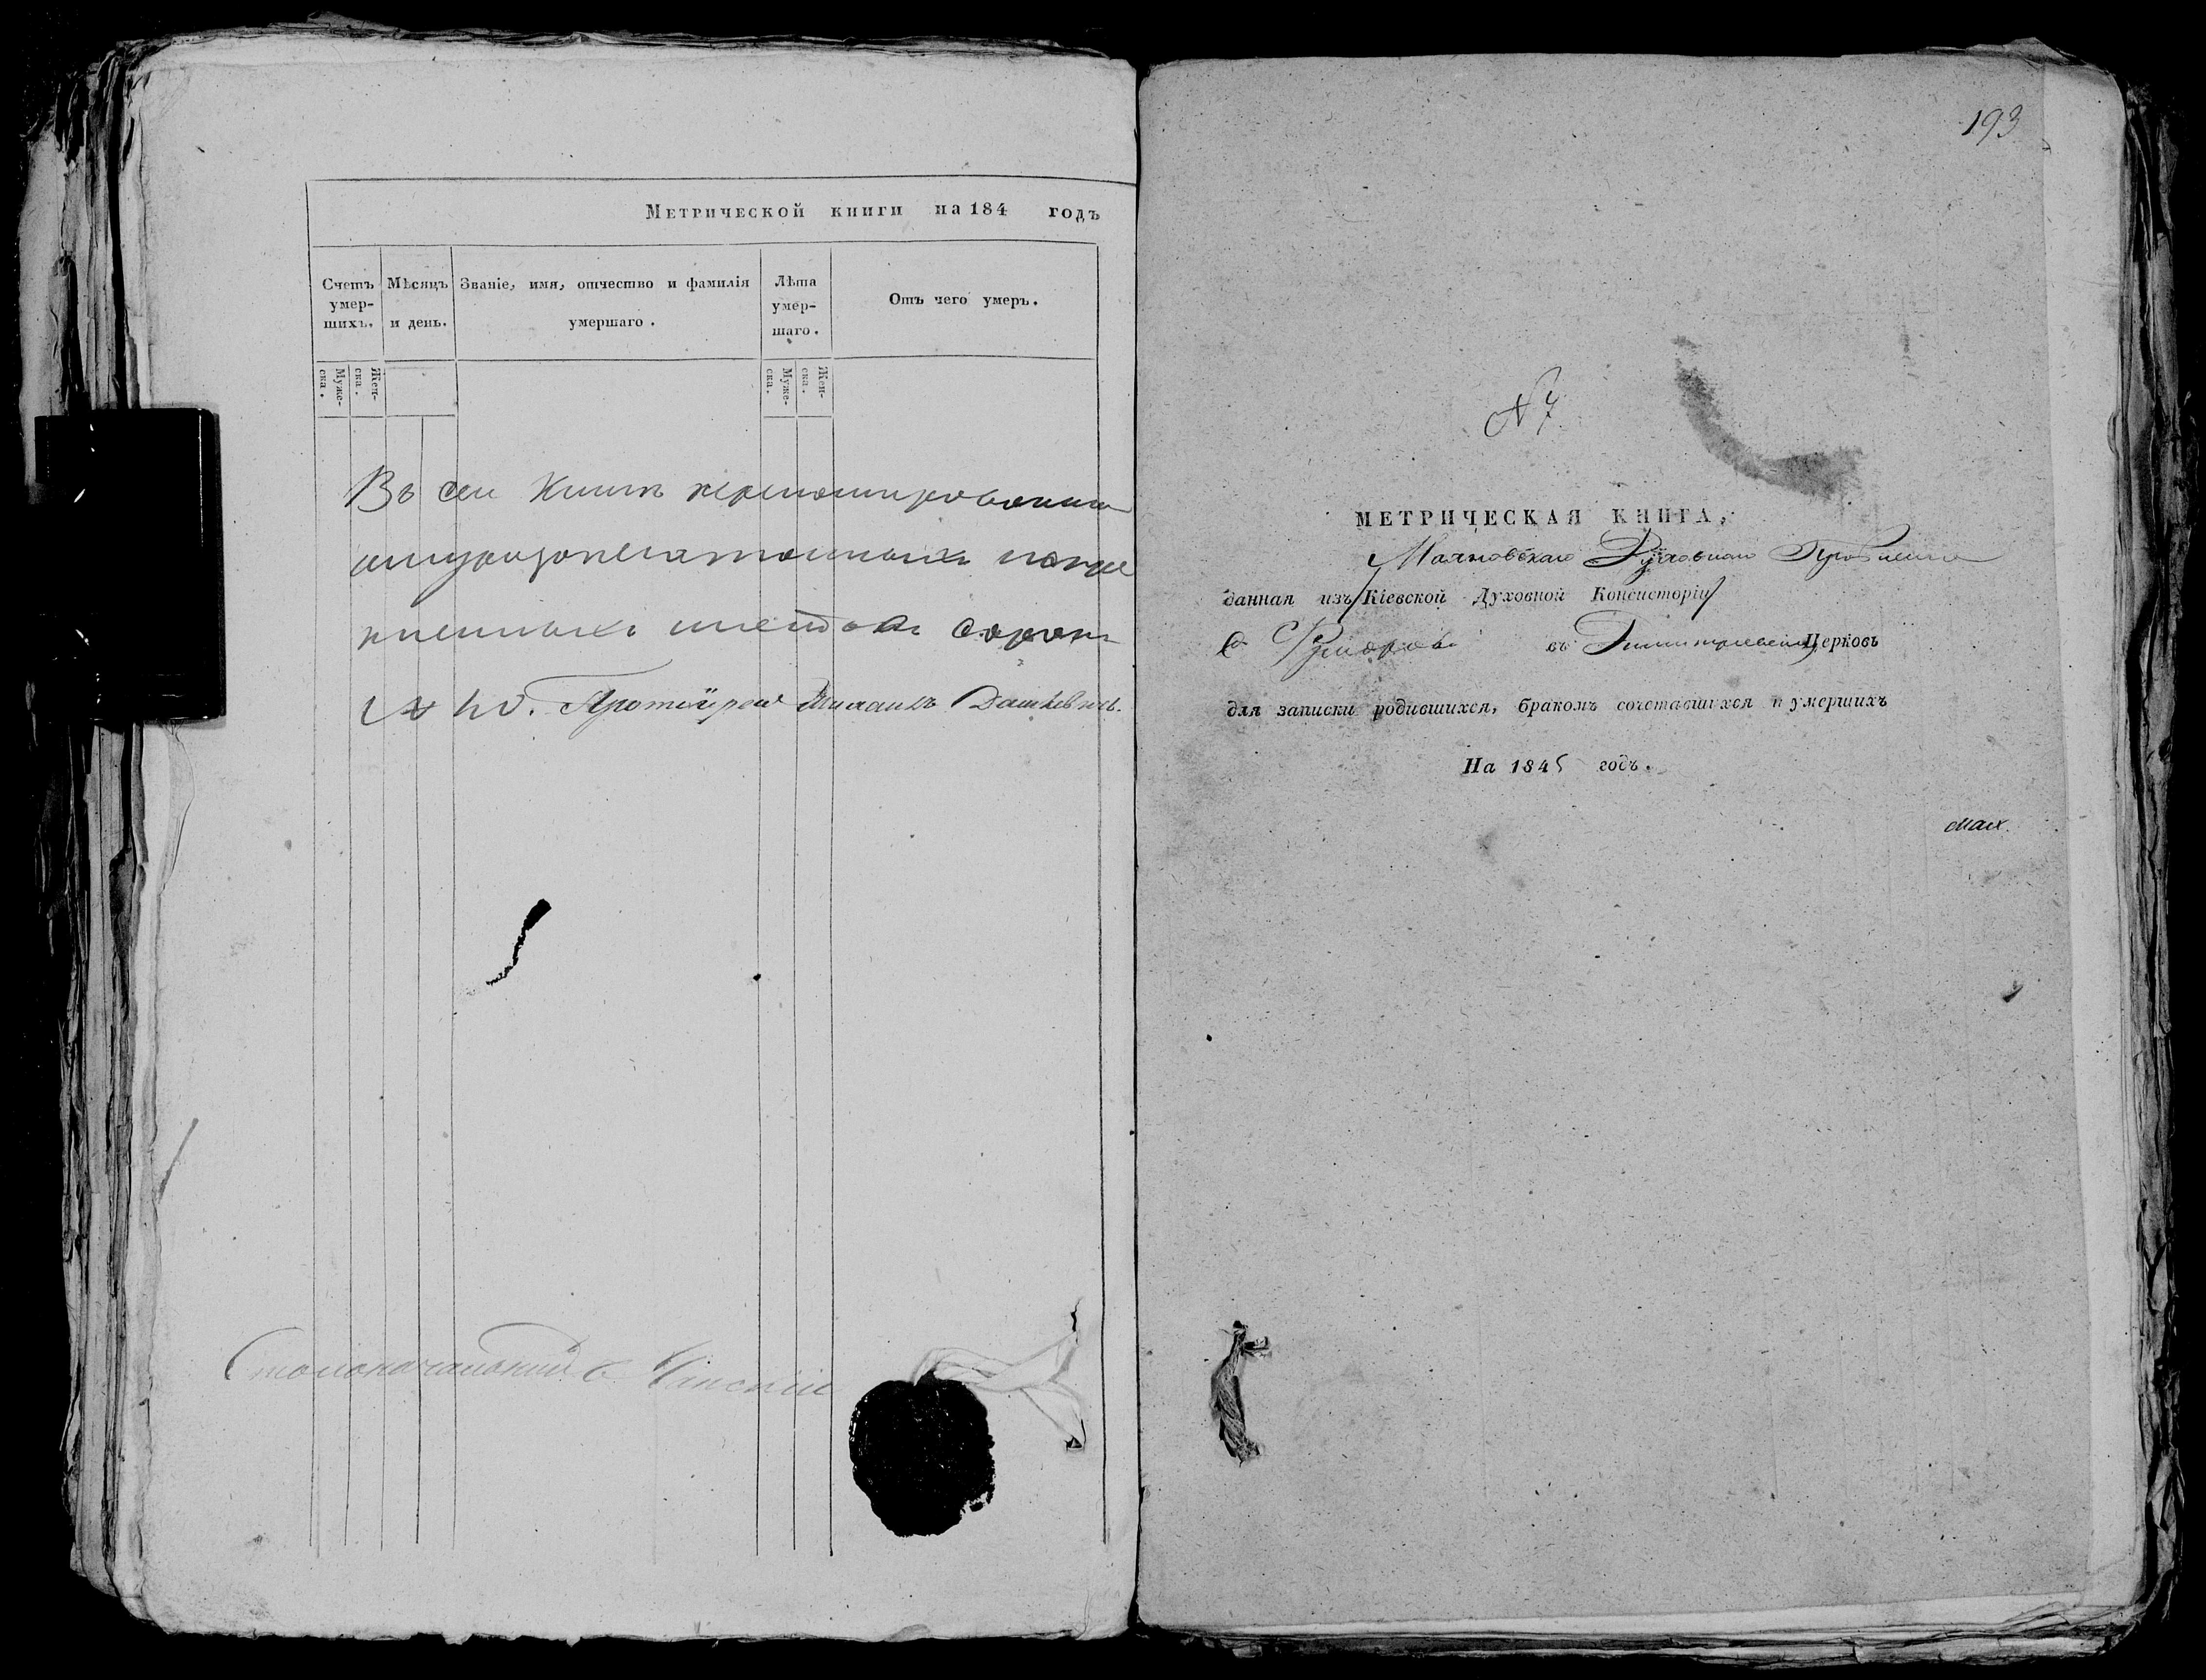 Метрической книги на 184 годъ
Счетъ умер-шихъ.
Мѣсяцъ и день.
Званіе, имя, отчество и фамилія умершаго.
Лѣта умер-шаго.
Отъ чего умеръ.
Муже-ска.
Жен-ска.
Муже-ска.
Жен-ска.
Въ сей книгѣ
шнурозапечатанныхъ
листовъ сорокъ
Протоіерей Михаилъ Дашкевичъ.
Столоначальникъ
193
№ 7
МЕТРИЧЕСКАЯ КНИГА,
Махновскаго Духовнаго Правленія
данная изъ Кіевской Духовной Консисторіи
въ Димитріевскую Церковь
для записки родившихся, бракомъ сочетавшихся и умершихъ
На 1845 годъ.
Мах.